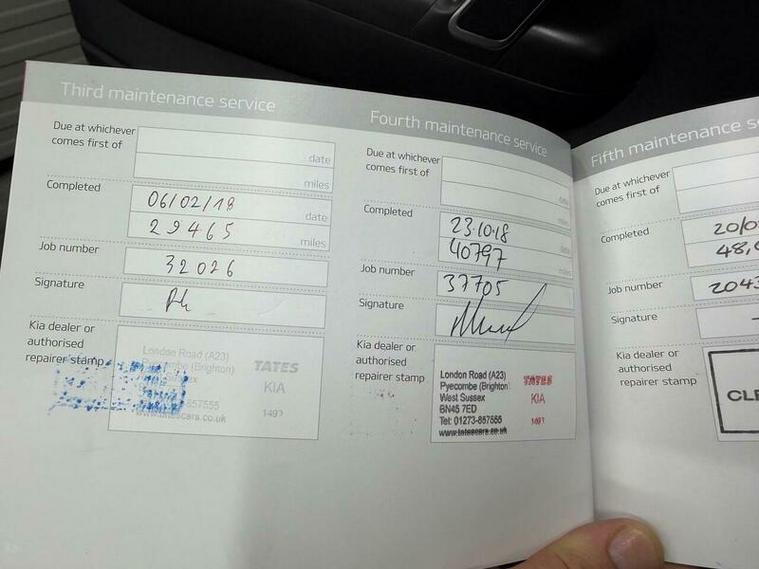 Third maintenance service
Due at whichever
comes first of
date
miles
Completed
06/02/18
date
29465
miles
Job number
32026
Signature
Kia dealer or
authorised
repairer stamp
London Road (A23)
Pyecombe (Brighton)
Sussex
857555
www.tatescars.co.uk
TATES
KIA
1497
Fourth maintenance service
Due at whichever
comes first of
date
miles
Completed
23.10.18
date
40797
miles
Job number
37705
Signature
Kia dealer or
authorised
repairer stamp
London Road (A23)
Pyecombe (Brighton)
West Sussex
BN45 7ED
Tel: 01273-857555
www.tatescars.co.uk
TATES
KIA
1497
Fifth maintenance s
Due at whichever
comes first of
Completed
20/0
48,
Job number
2043
Signature
Kia dealer or
authorised
repairer stamp
CLE